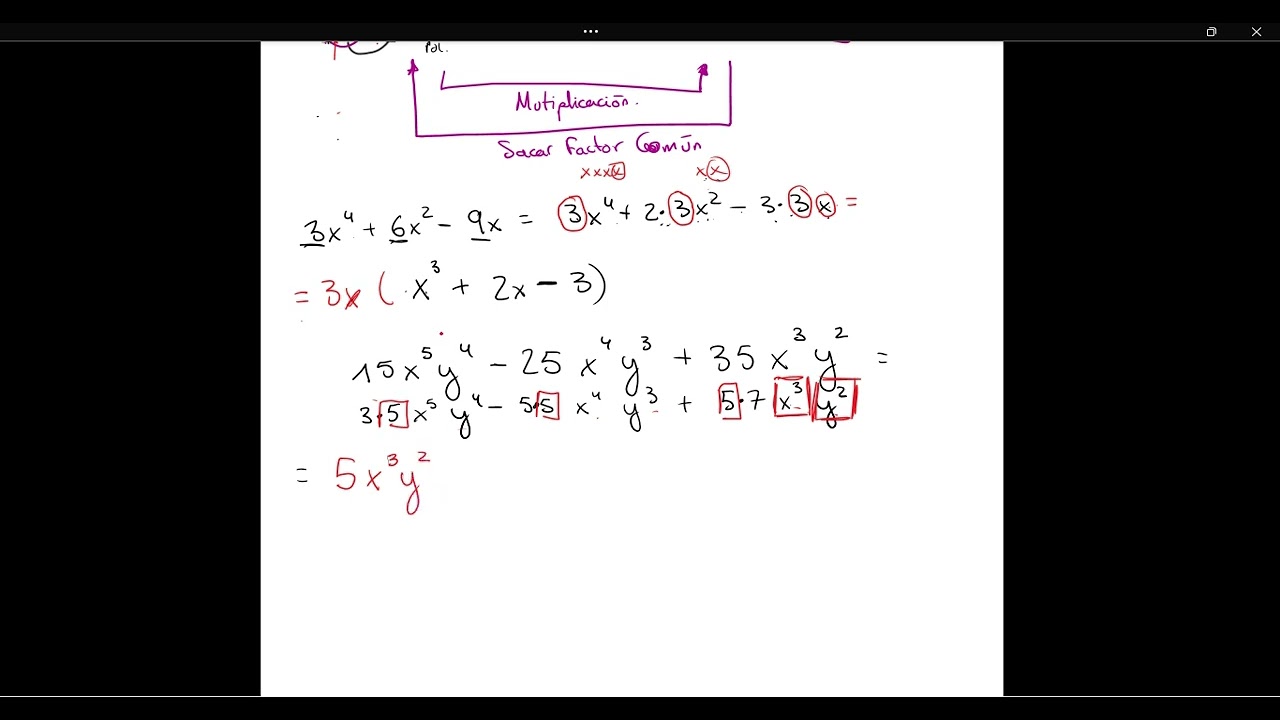 Pol.
Mutiplicación.
Sacar Factor Común
xxxx xx
3x⁴ + 6x² - 9x = 3x⁴ + 2·3x² - 3·3x =
= 3x (x³ + 2x - 3)
15x⁵y⁴ - 25x⁴y³ + 35x³y² =
3·5x⁵y⁴ - 5·5x⁴y³ + 5·7x³y²
= 5x³y²